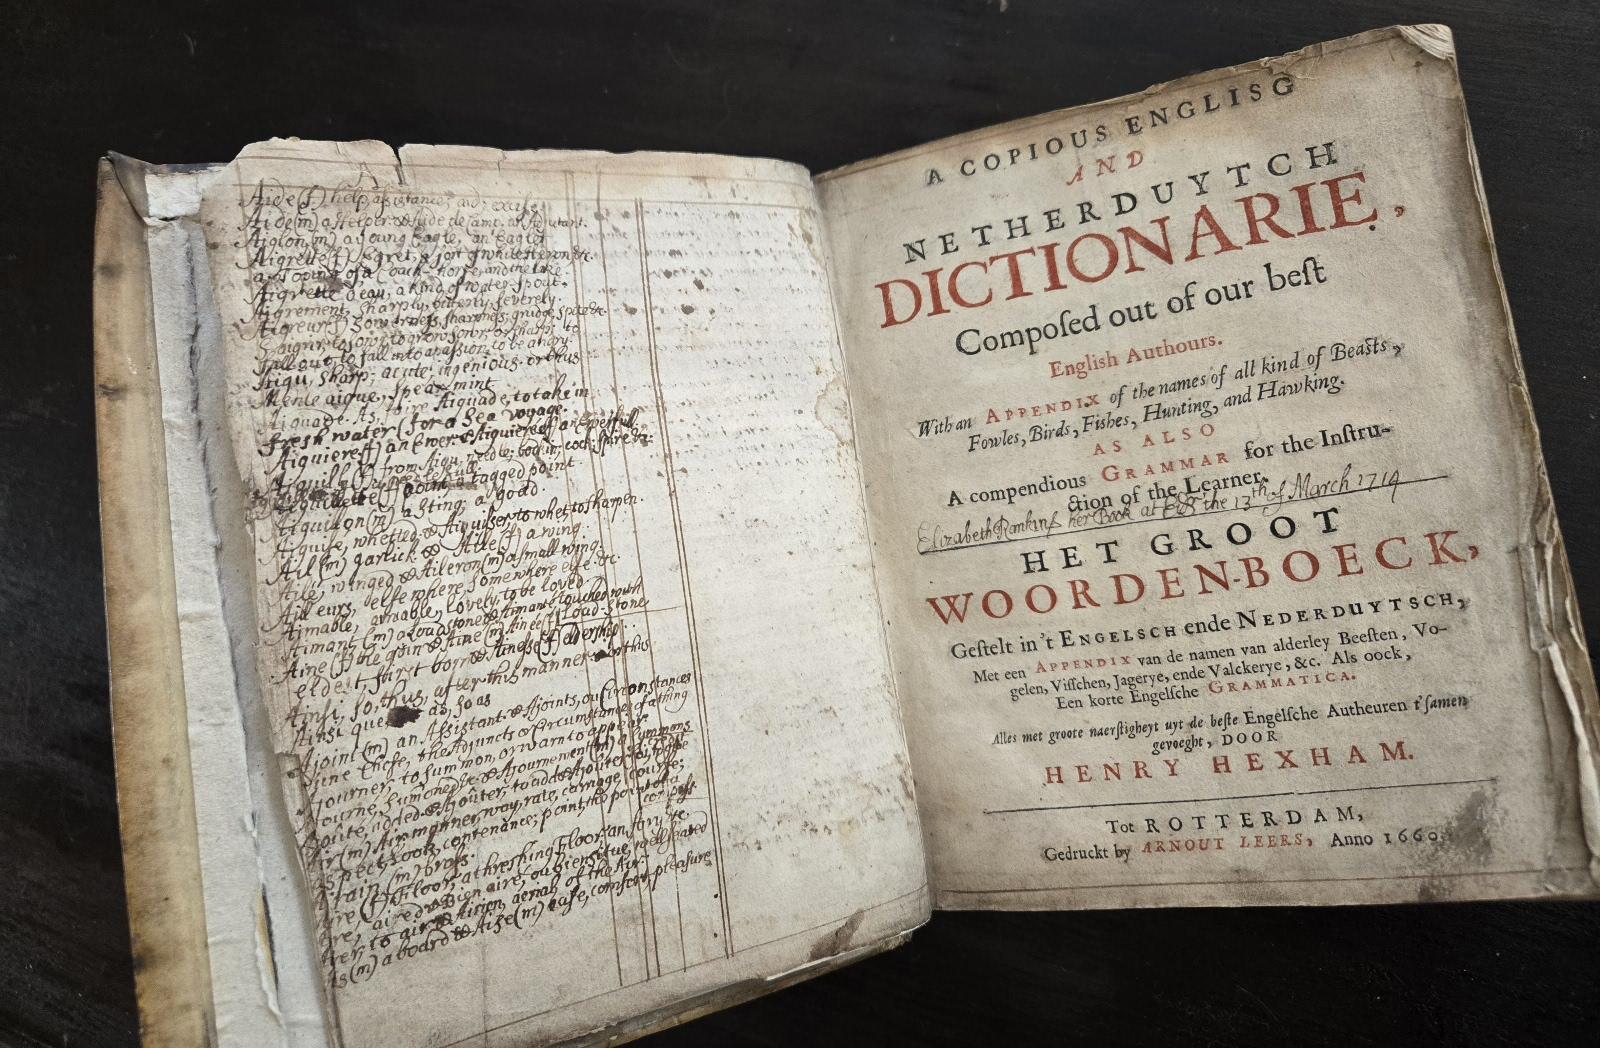 Aide (f) help, assistance, aid, excise.
Aide (m) a Helper & Aide de Camp, an Adjutant.
Aiglon, (m) a young Eagle, an Eaglet
Aigrette (f) Egret, a sort of white Heron &c.
a Topping of a Coach-horse, and the like.
Aigrette d'eau, a kind of water-spout.
Aigrement, sharply, bitterly, severely.
Aigreur (f) sowerness, sharpness, grudge, spite &c.
S'aigrir, to sowr, to grow sowr or sharp; to
fall out, to fall into a passion, to be angry.
Aigu, sharp; acute, ingenious. or thus
Menle aigue, spearmint
Aiguade. As, faire Aiguade, to take in
fresh water (for a Sea voyage.
Aiguiere (f) an Ewer & Aiguiereé (f) an Ewerfull
Aiguille (f) from Aigu, needle; bodkin; cock; spire &c.
needle full.
Aiguillette (f) point, a tagged point
Aiguillon (m) a sting; a goad.
Aiguisé, whetted & Aiguiser to whet to sharpen.
Ail (m) garlick & Aile (f) a wing.
Ailé, winged & Aileron (m) a small wing.
Ailleurs, elsewhere, somewhere else &c.
Aimable, amiable, lovely, to be loved.
Aimant (m) a Loadstone & Aimanté, touched with
Aine (f) the groin & Aine (m) Ainée (f) Load-stone
eldest, first born & Ainesse (f) eldership.
Ainsi, so, thus, after this manner. or thus
Ainsi que as, so as
Ajoint (m) an Assistant & Ajoints, ou Circonstances
d'une chose, the Adjuncts or Circumstances of a thing
Ajourner, to summon, or warn to appear.
Ajourné, sumoned & Ajournement (m) a Summons
Ajoûté, added & Ajoûter, to add
Air (m) Air, manner, way, rate, carriage, course,
aspect, look, contenance; point, the point of a
compass
Airain (m) brass.
Aire (f) Floor, a threshing Floor; an
Airé, aired & Bien airé, ou bien situé, well seated
Airer, to air & Airien, aerial, of the Air.
Ais (m) a board & Aise (m) ease, comfort, pleasure
A COPIOUS ENGLISG
AND
NETHERDUYTCH
DICTIONARIE,
Compoſed out of our beſt
English Authours.
With an APPENDIX of the names of all kind of Beaſts,
Fowles, Birds, Fishes, Hunting, and Hawking.
AS ALSO
A compendious GRAMMAR for the Inſtru-
ction of the Learner.
Elizabeth Rankins her Book at the 13th of March 1714
HET GROOT
WOORDEN-BOECK,
Geſtelt in 't ENGELSCH ende NEDERDUYTSCH,
Met een APPENDIX van de namen van alderley Beeſten, Vo-
gelen, Viſſchen, Jagerye, ende Valckerye, &c. Als oock,
Een korte Engelſche GRAMMATICA.
Alles met groote naerſtigheyt uyt de beſte Engelſche Autheuren t'ſamen
gevoeght, DOOR
HENRY HEXHAM.
Tot ROTTERDAM,
Gedruckt by ARNOUT LEERS, Anno 1660.